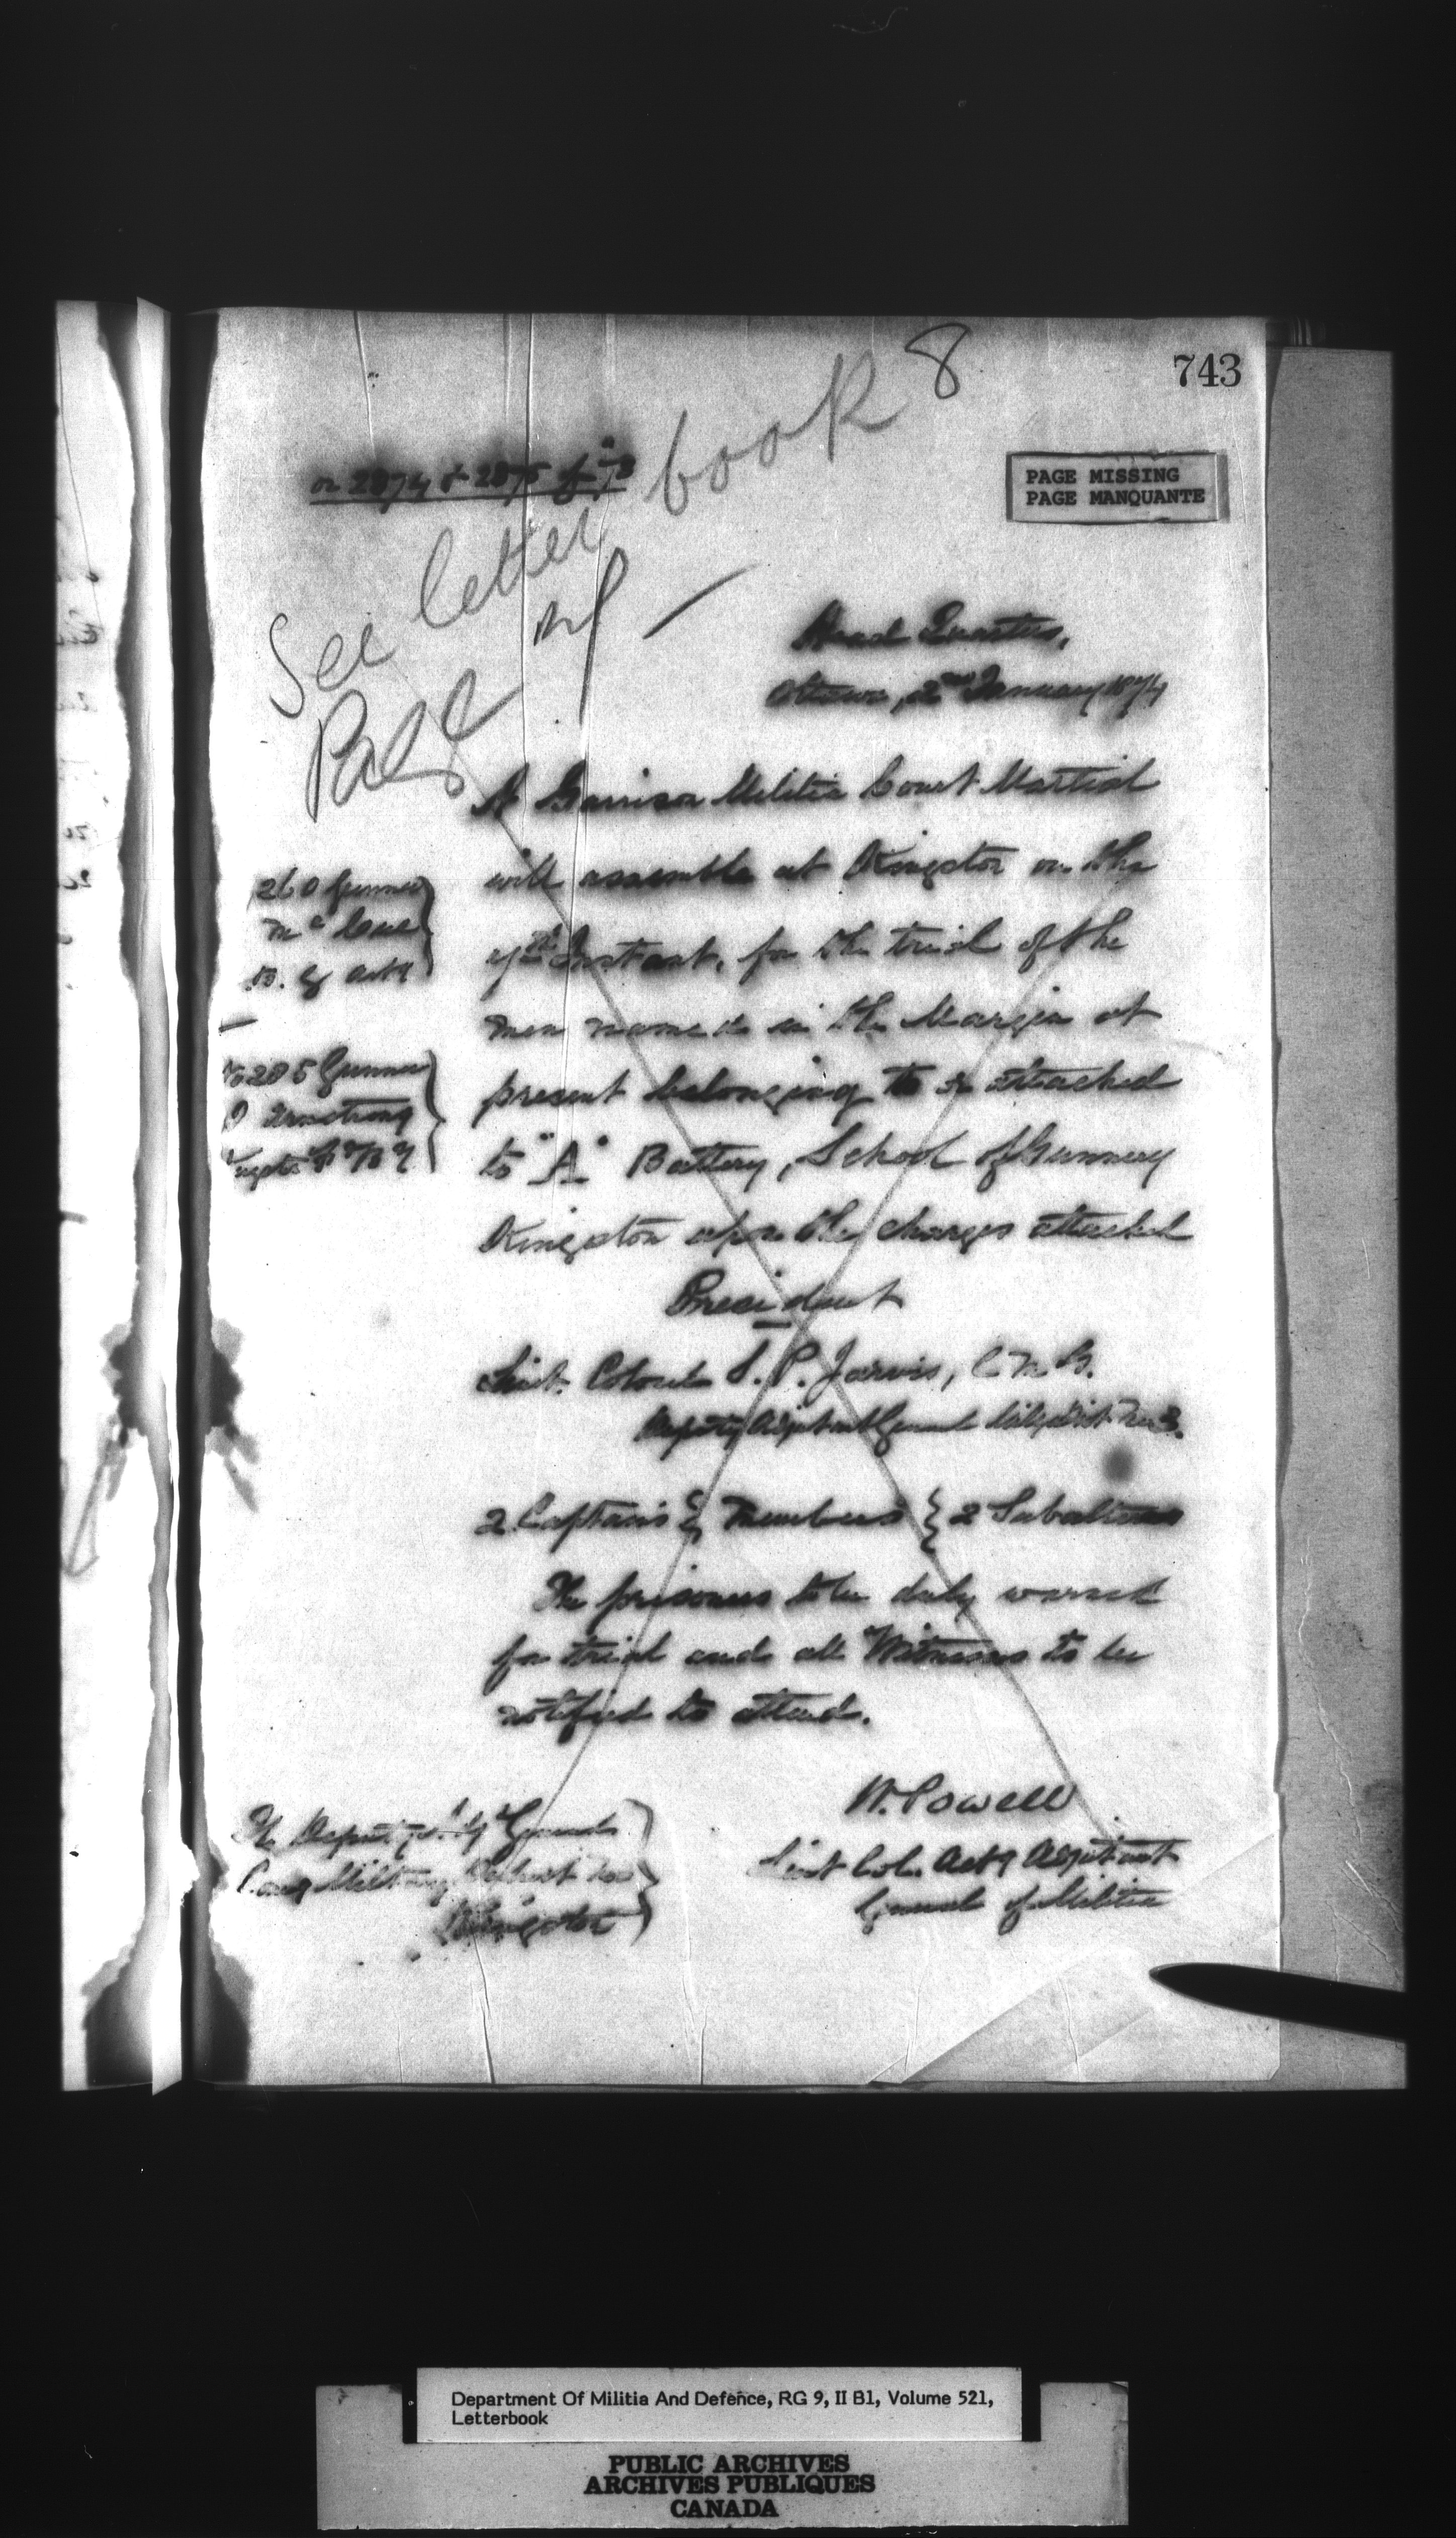 743
on 2874 & 2875 of 73
See letter book 8
Page
PAGE MISSING
PAGE MANQUANTE
Head Quarters,
Ottawa, 2nd January 1874
A Garrison Militia Court Martial
will assemble at Kingston on the
7th Instant, for the trial of the
men named in the Margin at
present belonging to or attached
to "A" Battery, School of Gunnery
Kingston upon the charges attached
260 Gunner
Mc Cue
B. G arty
285 Gunner
Armstrong
President
Lieut. Colonel S. P. Jarvis, C.M.G.
Deputy Adjutant General Mily Dist No 3.
2 Captains } Members { 2 Subalterns
The prisoners to be duly warned
for trial and all Witnesses to be
notified to attend.
W. Powell
Lieut Col. Actg Adjutant
General of Militia
The Deputy Adjt General
Comg Military District No
Kingston
Department Of Militia And Defence, RG 9, II B1, Volume 521,
Letterbook
PUBLIC ARCHIVES
ARCHIVES PUBLIQUES
CANADA